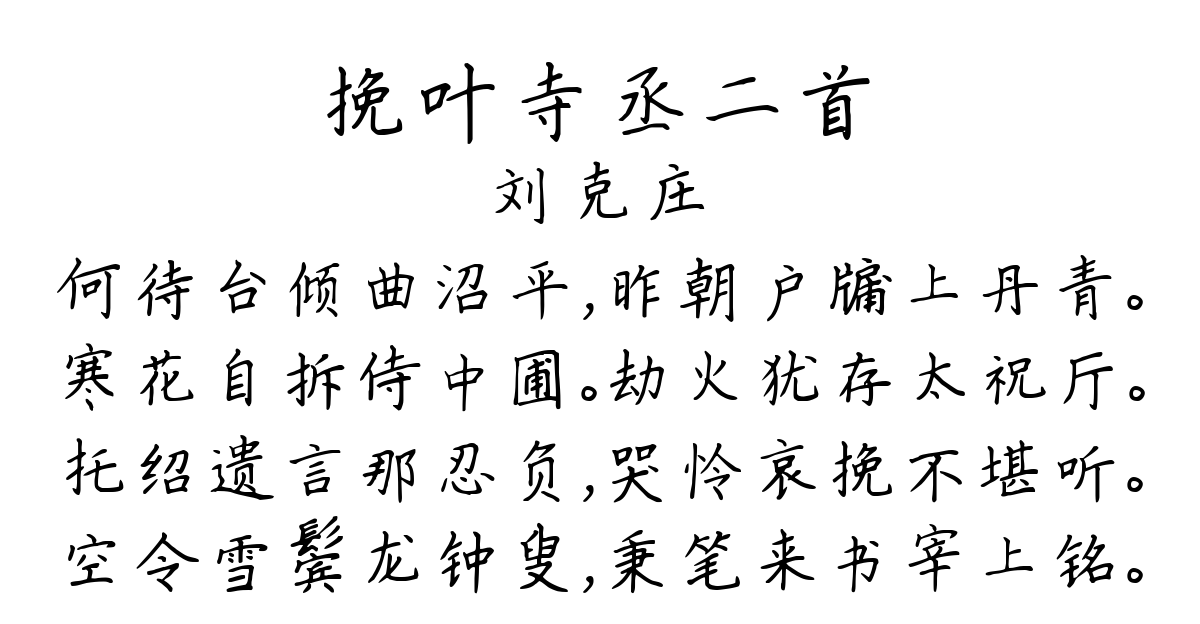 挽叶寺丞二首
刘克庄
何待台倾曲沼平,昨朝户牖上丹青。
寒花自拆侍中圃。劫火犹存太祝厅。
托绍遗言那忍负,哭怜哀挽不堪听。
空令雪鬓龙钟叟,秉笔来书宰上铭。